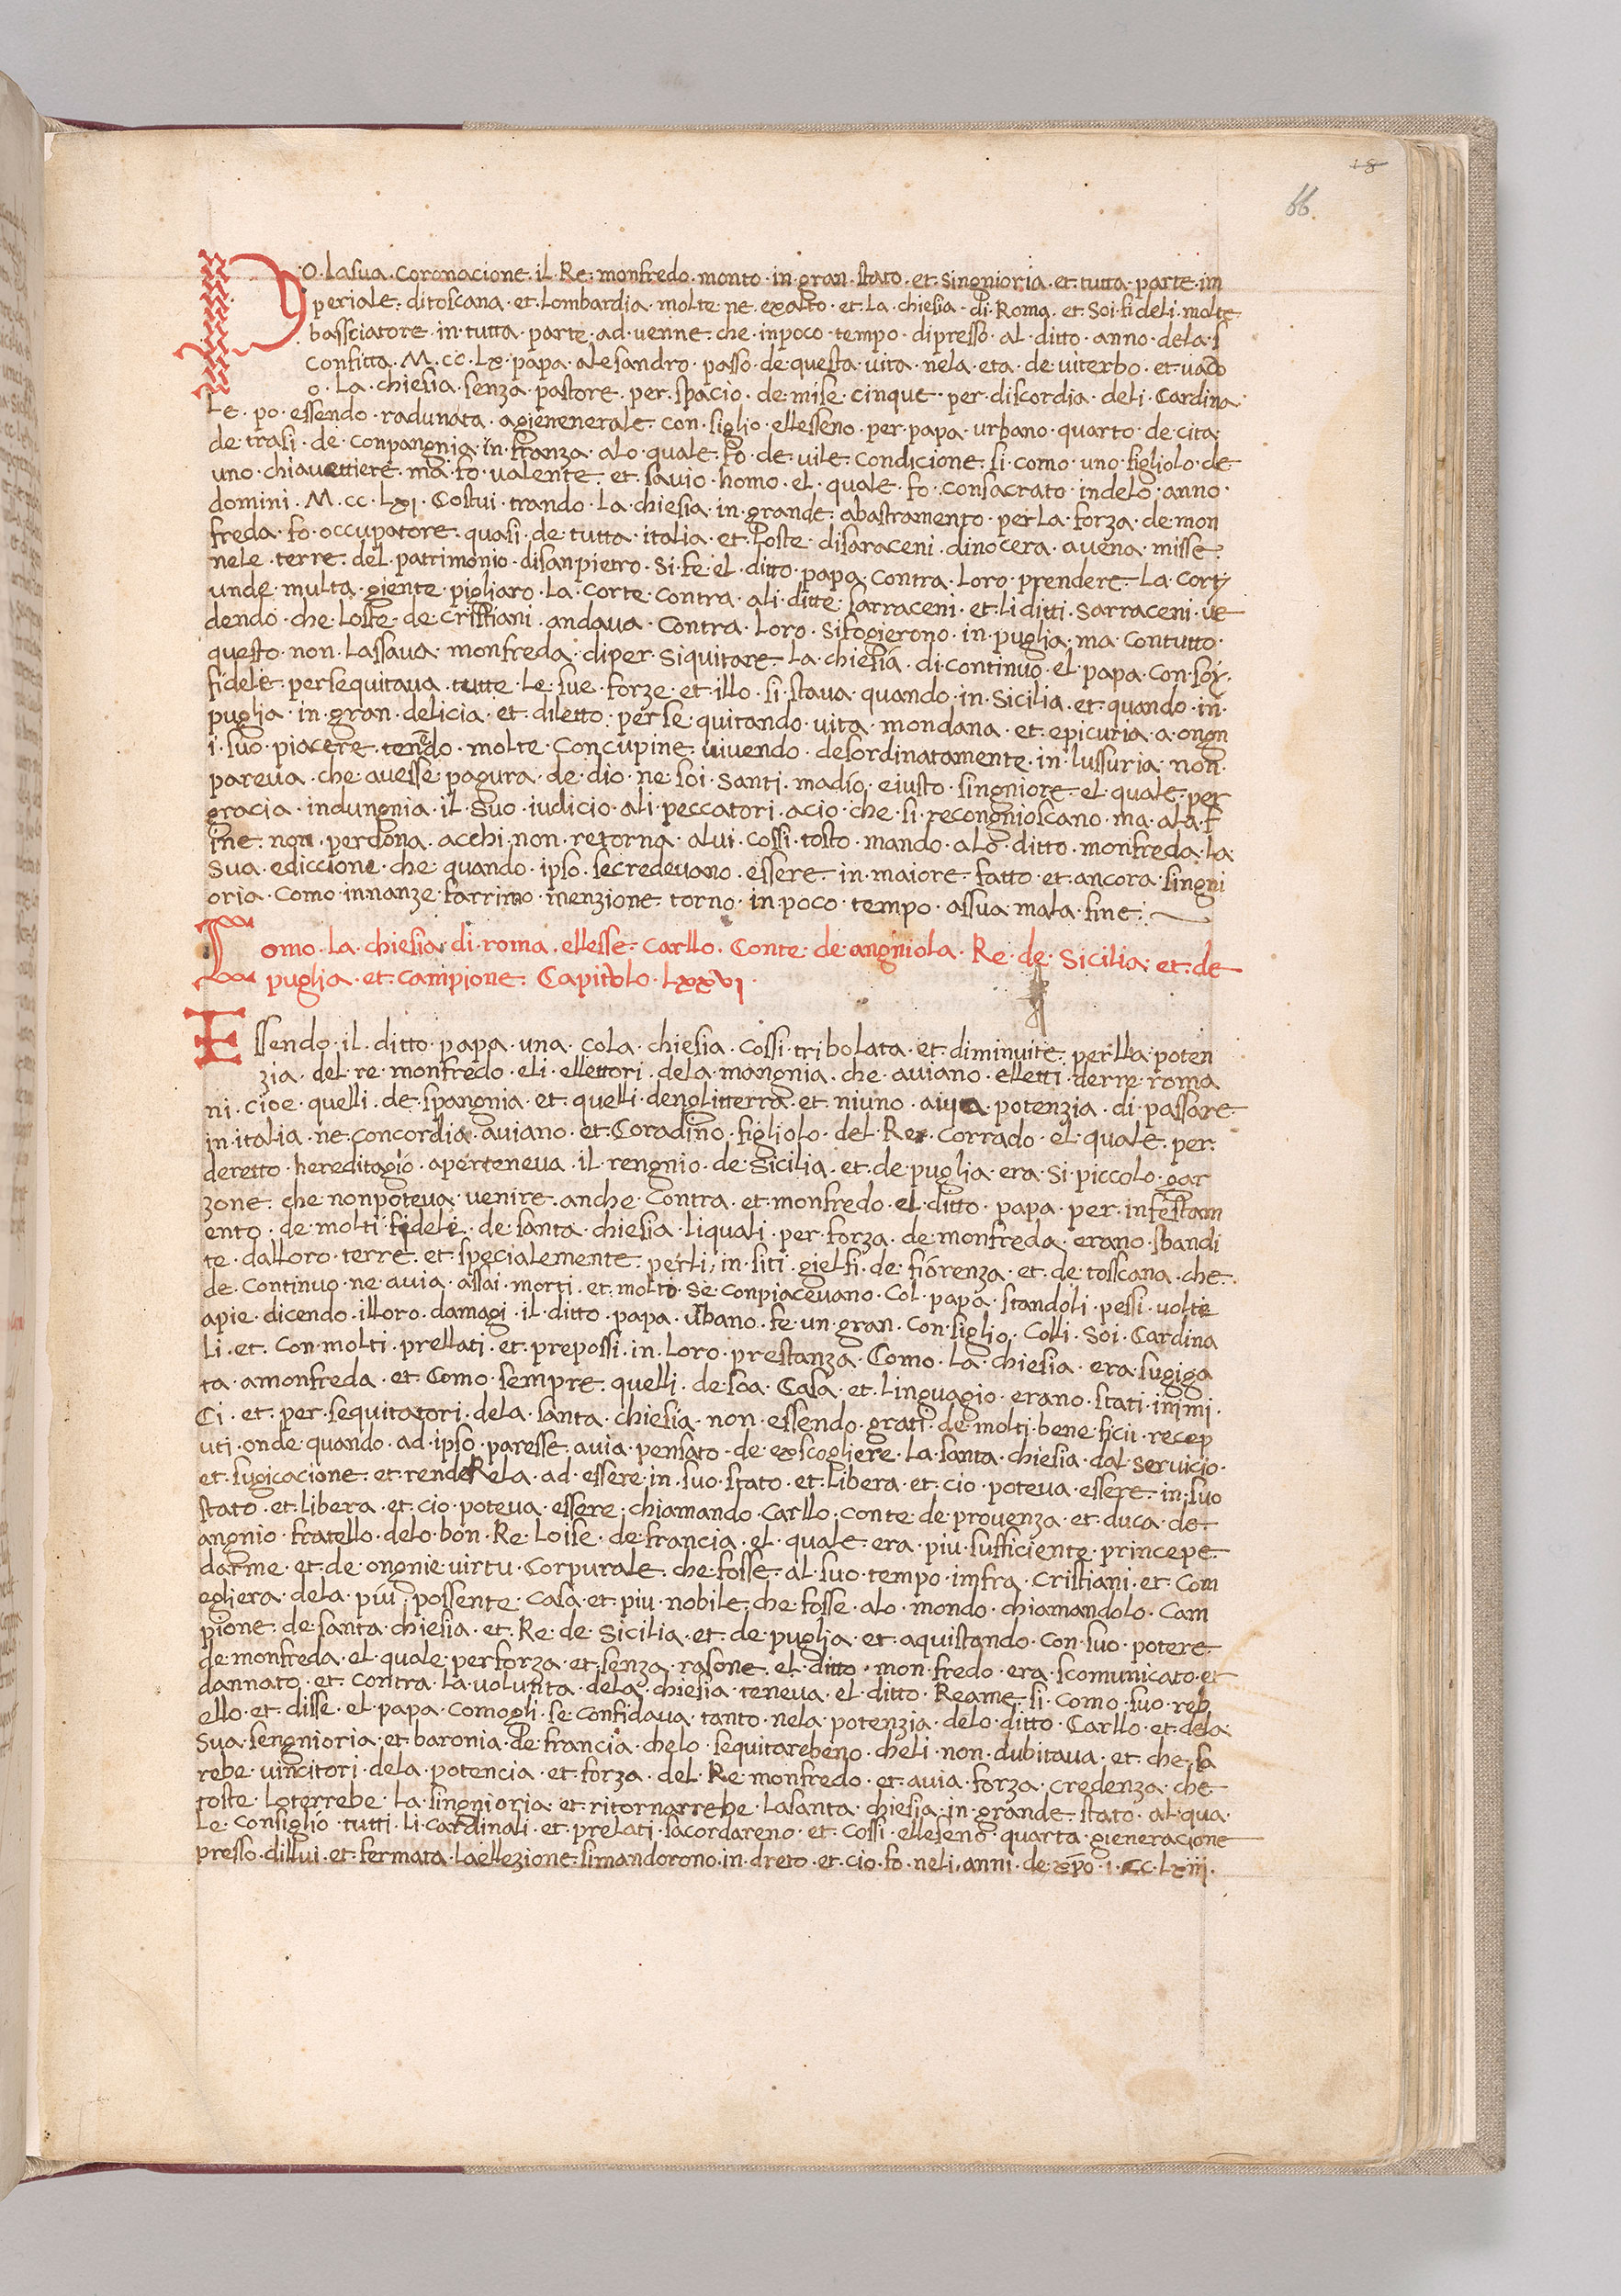 18
66
PO · la sua · coronacione · il · Re · monfredo · monto · in · gran · stato · et · singnioria · et · tutta · parte · im
periale · di toscana · et · Lombardia · molte · ne · exalto · et · La · chiesia · di · Roma · et · Soi · fideli · molte
bassciatore · in · tutta · parte · ad venne · che · in poco · tempo · di presso · al · ditto · anno · dela · s
confitta · M · cc · Lx · papa · alesandro · passo · de · questa · vita · nela · eta · de viterbo · et · vaco
o · La · chiesia · senza · pastore · per · spacio · de mise · cinque · per · discordia · deli · Cardina
Le · po · essendo · radunata · a gienenerale · con · siglio · ellesseno · per · papa · urbano · quarto · de cita
de trasi · de · conpangnia · in · franza · alo · quale · fo · de · vile · condicione · si · como · uno · figliolo · de
uno · chiavettiere · ma · fo · valente · et · savio · homo · el · quale · fo · consacrato · in delo · anno ·
domini · M · cc · Lxi · Costui · trando · La · chiesia · in · grande · abastramento · per La · forza · de mon
freda · fo · occupatore · quasi · de · tutta · italia · et · Loste · di saraceni · di nocera · avena · misse
nele · terre · del · patrimonio · di san pietro · Si · fe · el · ditto · papa · contra · Loro · prendere · La · Cort
unde · multa · giente · pigliaro · La · corte · contra · ali · ditte · sarraceni · et · li ditti · sarraceni · ve
dendo · che · Loste · de cristiani · andava · contra · Loro · si fogierono · in · puglia · ma · contutto ·
questo · non · Lassava · monfreda · di per · siquitare · La · chiesia · di · continuo · el · papa · con · soy ·
fidele · persequitava · tutte · Le · sue · forze · et · illo · si · stava · quando · in · Sicilia · et · quando · in ·
puglia · in · gran · delicia · et · diletto · perse · quitando · vita · mondana · et · epicuria · a · ongn
i · suo · piacere · tenedo · molte · Concupine · vivendo · desordinatamente · in · lussuria · non ·
pareva · che · avesse · pagura · de · dio · ne · soi · Santi · ma dio · e iusto · singniore · el · quale · per
gracia · indungnia · il · suo · iudicio · ali · peccatori · acio · che · si · recongnioscano · ma · ala · f
ine · non · perdona · acchi · non · retorna · alui · cossi · tosto · mando · alo · ditto · monfreda · la
sua · ediccione · che · quando · ipso · se credevano · essere · in · maiore · fatto · et · ancora · singni
oria · como · innanze · farrimo · menzione · torno · in · poco · tempo · assua · mala · fine ·
omo · La · chiesia · di · roma · ellesse · Carllo · Conte · de angniola · Re · de · Sicilia · et · de
puglia · et · campione · Capitolo · Lxxvi ·
Essendo · il · ditto · papa · una · cola · chiesia · cossi · tribolata · et · diminuite · per lla · poten
zia · del · re · monfredo · eli · ellettori · dela · mangnia · che · aviano · elletti · derre · roma
ni · cioe · quelli · de · spangnia · et · quelli · denglitterra · et · niuno · aiuta · potenzia · di · passare
in · italia · ne · concordia · aviano · et · Coradino · figliolo · del · Re · corrado · el · quale · per ·
deretto · hereditagio · aperteneva · il · rengnio · de · Sicilia · et · de · puglia · era · si · piccolo · gar
zone · che · non poteva · venire · anche · contra · et · monfredo · el · ditto · papa · per · infestam
ento · de · molti · fideli · de · santa · chiesia · li quali · per · forza · de · monfreda · erano · sbandi
te · dalloro · terre · et · specialemente · perli · in · siti · gielfi · de · fiorenza · et · de · toscana · che ·
de · continuo · ne · avia · assai · morti · et · molto · se · conpiacevano · Col · papa · standoli · pessi · volte
apie · dicendo · illoro · damagi · il · ditto · papa · urbano · fe · un · gran · con · siglio · Colli · Soi · Cardina
Li · et · Con · molti · prellati · et · prepossi · in · Loro · prestanza · Como · La · chiesia · era · sugiga
ta · a monfreda · et · Como · sempre · quelli · de · soa · Casa · et · Linguagio · erano · stati · inimi ·
Ci · et · per · sequitatori · dela · santa · chiesia · non · essendo · grati · de · molti · bene · ficii · recep
uti · onde · quando · ad · ipso · paresse · avia · pensato · de · exscogliere · La · santa · chiesia · dal · servicio ·
et · sugicacione · et · rendeRela · ad · essere · in · suo · stato · et · Libera · et · cio · poteva · essere · in · suo
stato · et · libera · et · cio · poteva · essere · chiamando · Carllo · conte · de · provenza · et · duca · de
angnio · fratello · delo · bon · Re · Loise · de · francia · el · quale · era · piu · sufficiente · princepe
darme · et · de · ongnie · virtu · Corpurale · che · fosse · al · suo · tempo · imfra · cristiani · et · Com
egliera · dela · piu · possente · Casa · et · piu · nobile · che · fosse · alo · mondo · chiamandolo · Cam
pione · de · santa · chiesia · et · Re · de · Sicilia · et · de · puglia · et · aquistando · con · suo · potere
de · monfreda · el · quale · per forza · et · senza · rasone · el · ditto · mon · fredo · era · scomunicato · et
dannato · et · contra · La · volunta · dela · chiesia · teneva · el · ditto · Reame · si · como · suo · reb
ello · et · disse · el · papa · comogli · se · confidava · tanto · nela · potenzia · delo · ditto · Carllo · et · dela
sua · sengnioria · et · baronia · de · francia · chelo · sequitarebeno · cheli · non · dubitava · et · che · sa
rebe · vincitori · dela · potencia · et · forza · del · Re · monfredo · et · avia · forza · credenza · che
toste · Loterrebe · La · singnioria · et · ritornarrebe · La santa · chiesia · in · grande · stato · al · qua ·
Le · Consiglio · tutti · Li · cardinali · et · prelati · sacordareno · et · cossi · elleseno · quarta · gieneracione
presso · dillui · et · fermata · La ellezione · si mandorono · in · dreto · et · cio · fo · neli · anni · de · xpo · i · CC · Lxiii ·